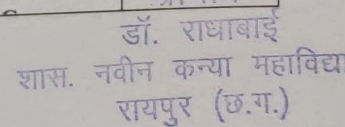 डॉ. राधाबाई
शास. नवीन कन्या महाविद्या
रायपुर (छ.ग.)